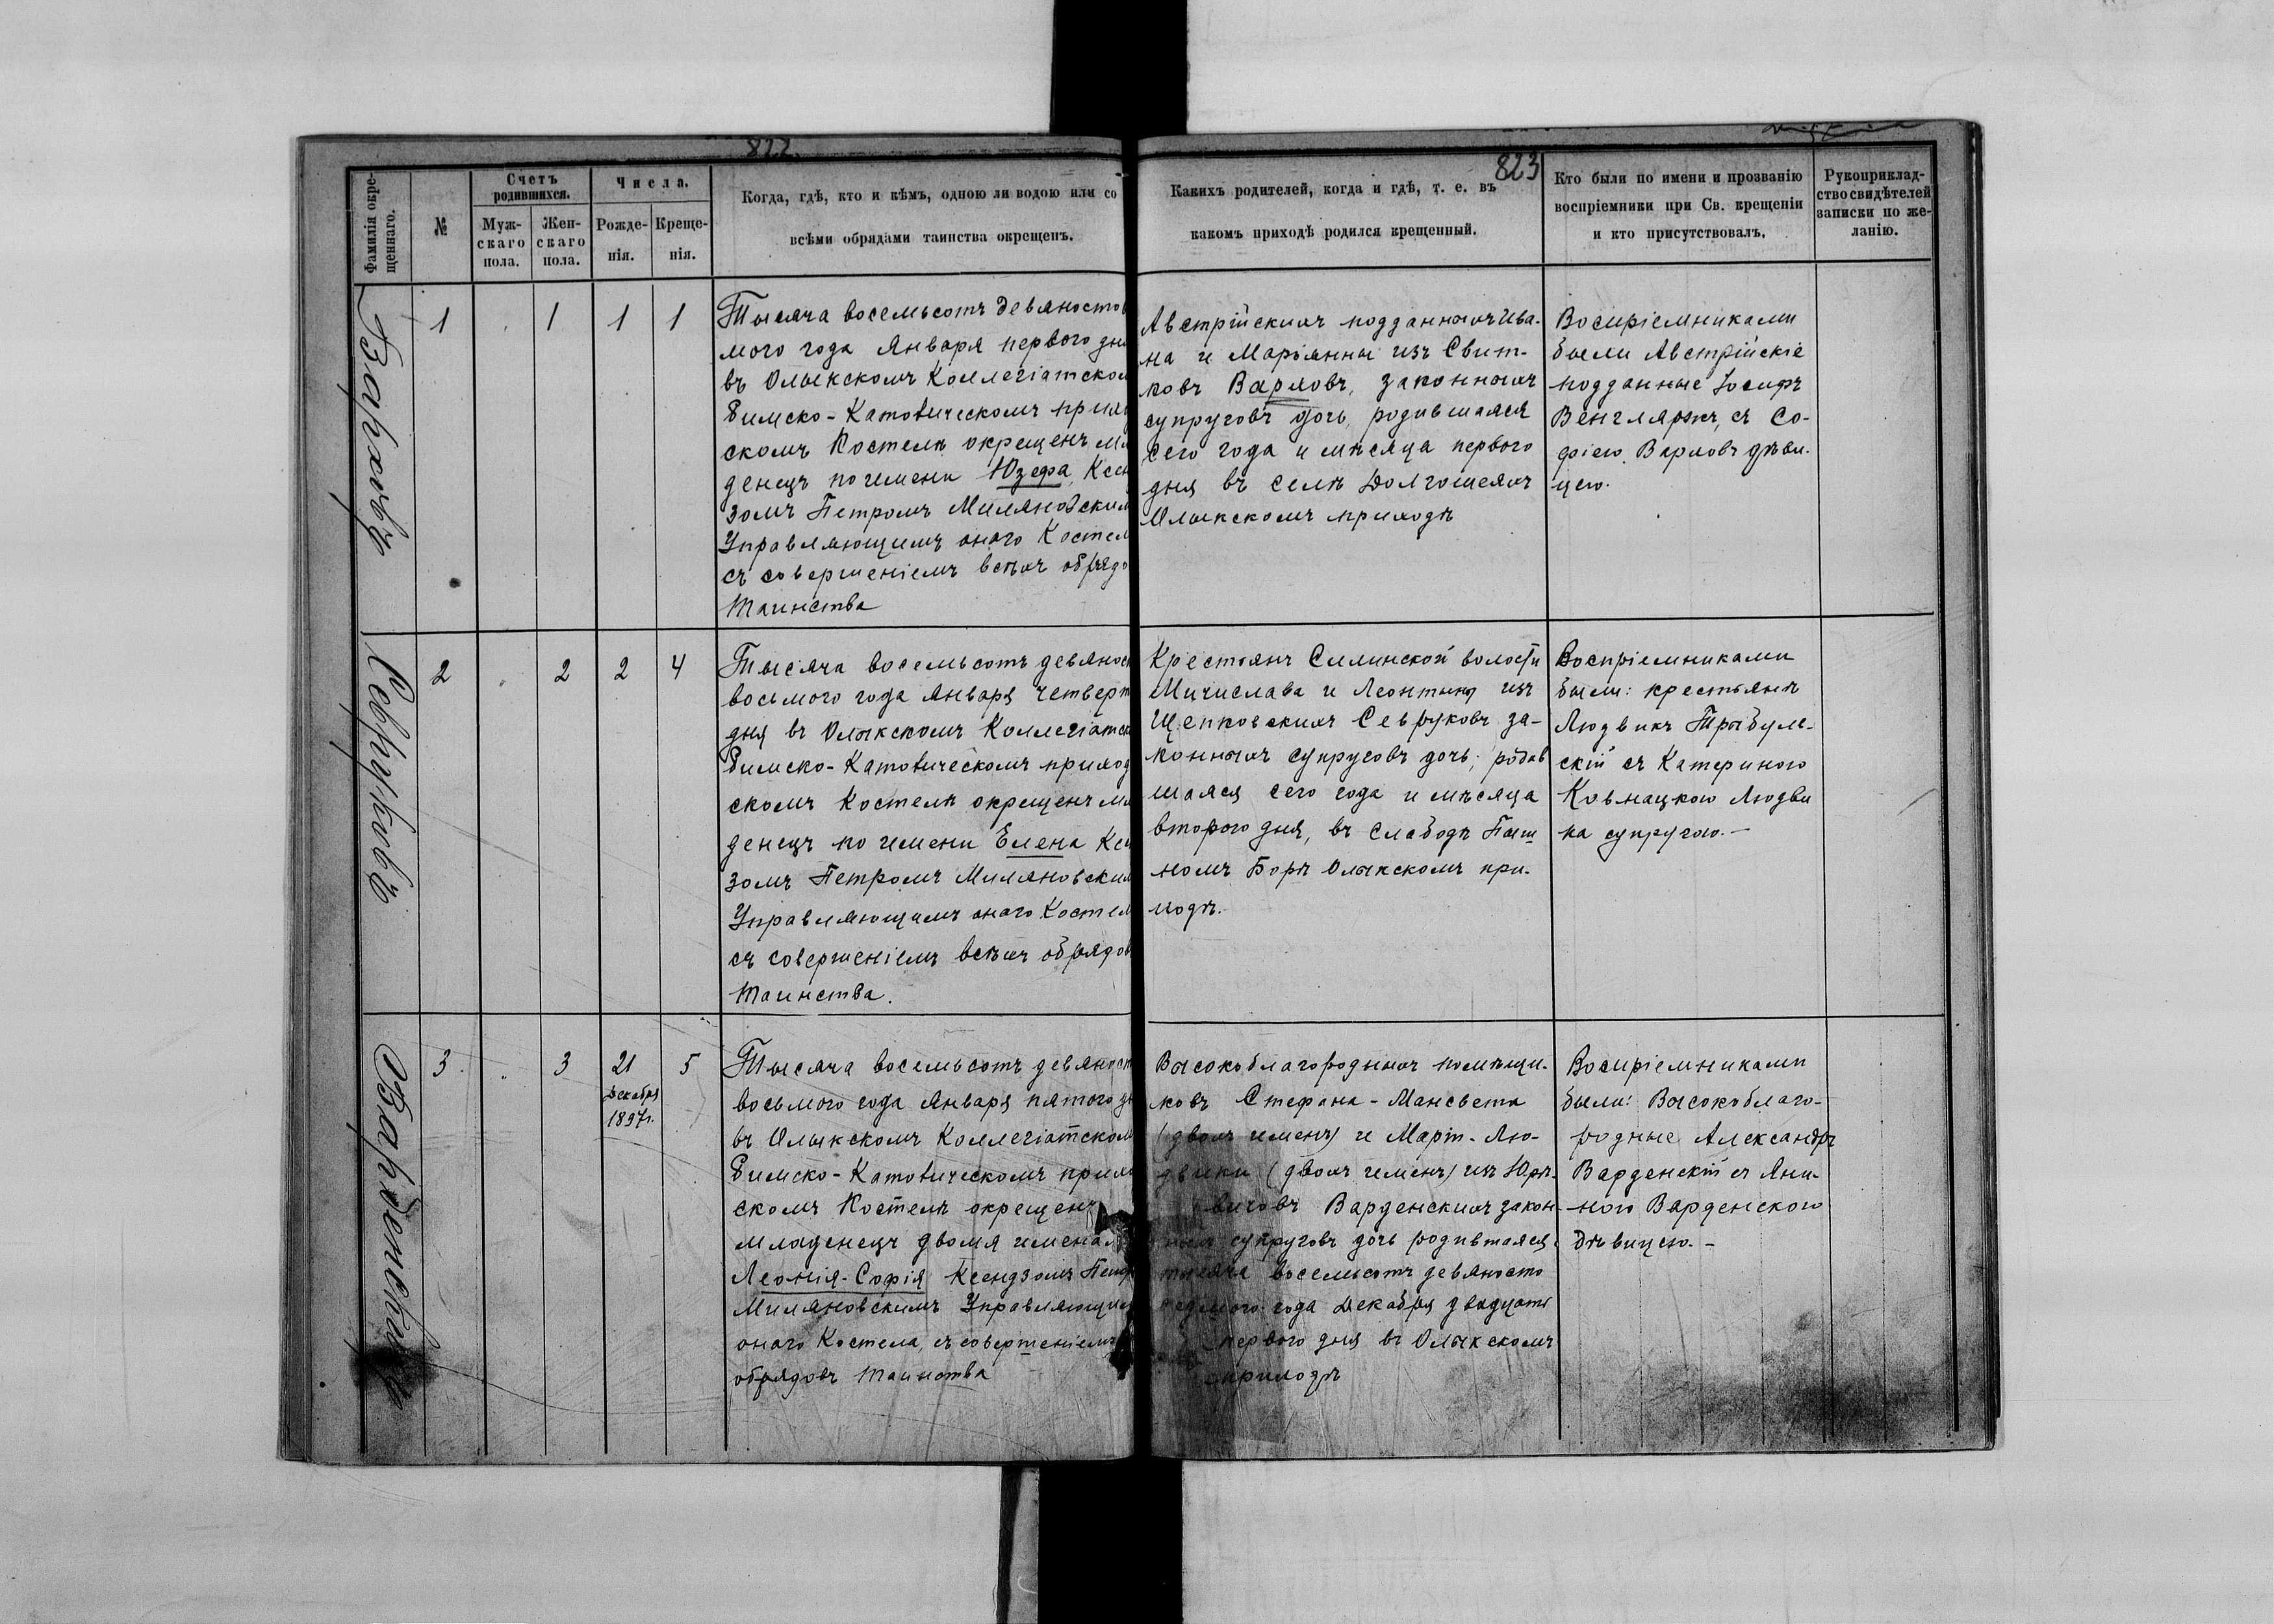 822.
823
Фамилія окре-
щеннаго.
№
Счетъ
родившихся.
Муж-
скаго
пола.
Жен-
скаго
пола.
Числа.
Рожде-
нія.
Креще-
нія.
Когда, гдѣ, кто и кѣмъ, одною ли водою или со
всѣми обрядами таинства окрещенъ.
Какихъ родителей, когда и гдѣ, т. е. въ
какомъ приходѣ родился крещенный.
Кто были по имени и прозванію
воспріемники при Св. крещеніи
и кто присутствовалъ.
Рукоприклад-
ство свидѣтелей
записки по же-
ланію.
Варховъ
1
1
1
1
Тысяча восемьсотъ девяносто
мого года Января первого дня
въ Олыкскомъ Коллегіатском
Римско-Католическомъ прих
скомъ Костелѣ окрещенъ мл
денецъ по имени Юзефа, Ксен
зомъ Петромъ Миляновским
Управляющимъ оного Костел
съ совершеніемъ всѣхъ обрядо
Таинства
Австрійскихъ подданныхъ Ива-
на и Маріянны изъ Свит-
ковъ Варховъ, законныхъ
супруговъ дочь, родившаяся
сего года и мѣсяца первого
дня въ селѣ Долгошеяхъ
Олыкскомъ приходѣ
Воспріемниками
были Австрійскіе
подданные Іосифъ
Венгляржъ, съ Со-
фіею Варховъ дѣви-
цею.
Севруковъ
2
2
2
4
Тысяча восемьсотъ девянос
восьмого года Января четверт
дня въ Олыкскомъ Коллегіатск
Римско-Католическомъ приход
скомъ Костелѣ окрещенъ мл
денецъ по имени Елена Ксен
зомъ Петромъ Миляновским
Управляющимъ оного Костел
съ совершеніемъ всѣхъ обрядов
Таинства.
Крестьянъ Силинской волости
Мичислава и Леонтины изъ
Щепковскихъ Севруковъ за-
конныхъ супруговъ дочь, родив
шаяся сего года и мѣсяца
второго дня, въ Слабодѣ Пыш
номъ Борѣ Олыкскомъ при-
ходѣ.
Воспріемниками
были: крестьяня
Людвикъ Трыбуль-
скій съ Катериною
Ковнацкою Людви
ка супругою.-
Варденскихъ
3
3
21
Декабря
1897г.
5
Тысяча восемьсотъ девяност
восьмого года Января пятого дн
въ Олыкскомъ Коллегіатском
Римско-Католическомъ прихо
скомъ Костелѣ окрещенъ
младенецъ двомя именам
Леонія-Софія Ксендзомъ Петр
Миляновскимъ Управляющим
оного Костела, съ совершеніемъ
обрядовъ Таинства
Высокоблагородныхъ помѣщи-
ковъ Стефана-Мансвета
(двохъ именъ) и Маріи-Лю-
двики (двохъ именъ) изъ Юрь-
евичовъ Варденскихъ закон-
ныхъ супруговъ дочь родившаяся
тысяча восемьсотъ девяносто
седмого года Декабря двадцать
первого дня въ Олыкскомъ
приходѣ
Воспріемниками
были: Высокоблаго-
родные Александръ
Варденскій съ Яни-
ною Варденскою
дѣвицею.-